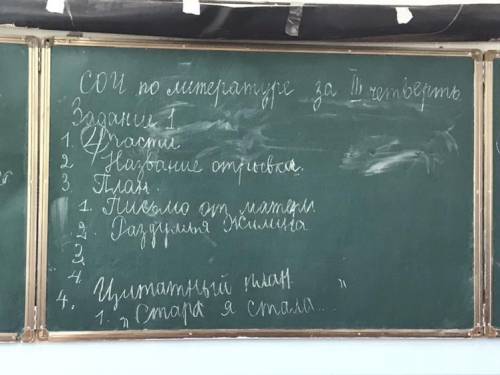 СОЧ по литературе за III четверть
Задание 1
1. 4 части
2 Название отрывка.
3. План.
1. Письмо от матери
2. Раздумья Жилина
3.
4.
4. Цитатный план
1. „Стара я стала..."